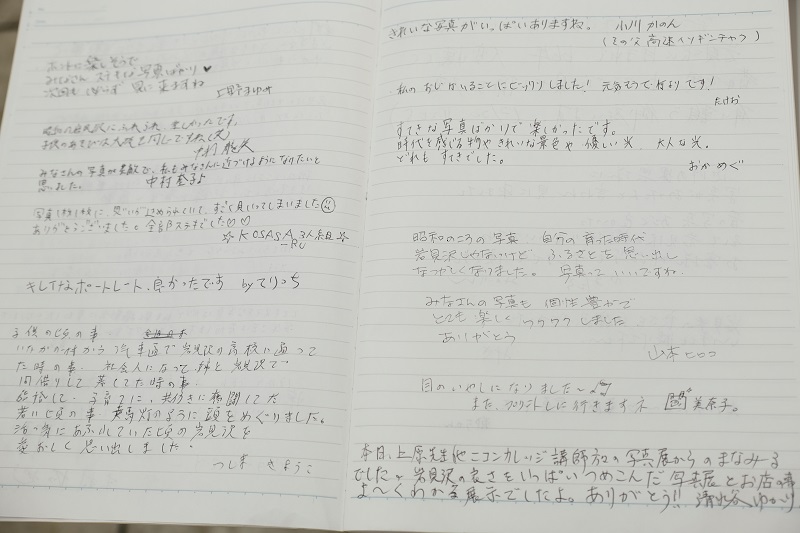 ホントに楽しそうで
みなさん ステキな写真ばかり♥
次回も
上野まゆみ
みなさんの写真が素敵で、私もみなさんに近づけるようになりたいと
思いました。 中村
写真1枚1枚に、思いが込められていて、すごく見いってしまいました
ありがとうございました。全部ステキでした♡♡
☆KOSASA 3人組☆
-RU
キレイなポートレート、良かったです byてりっち
子供のころの事
いなかの村から汽車通で岩見沢の高校に通って
た時の事. 社会人になって、姉と岩見沢で
間借りして暮してた時の事.
結婚して、子育てに、共稼ぎに奮闘してた
若い頃の事. 走馬灯のように頭をめぐりました。
活気にあふれていた頃の岩見沢を
愛おしく思い出しました.
つしま きょうこ
きれいな写真がい。ぱいありますね。 小川 かのん
(その父 高速イソギンチャク)
私のおじがいることにビックリしました! 元気そうで何よりです!
たけお
すてきな写真ばかりで楽しかったです。
時代を感じる物やきれいな景色や優しい光、大人な光。
どれも すてきでした。
おか めぐ
昭和のころの写真 自分の育った時代
岩見沢じゃないけど ふるさとを思い出し
なつかしくなりました。 写真っていいですね.
みなさんの写真も 個性豊かで
とても楽しく ワクワクしました
ありがとう
山本ヒロコ
目のいやしになりました〜
また、プリントしに行きますネ 國 美奈子。
本日、上原先生やニコンカレッジ講師方の写真展からのまなみーる
でした。岩見沢の良さをいっぱいつめこんだ写真展とお店の事
よ〜くわかる展示でしたよ。ありがとう!! 清水谷ゆかり